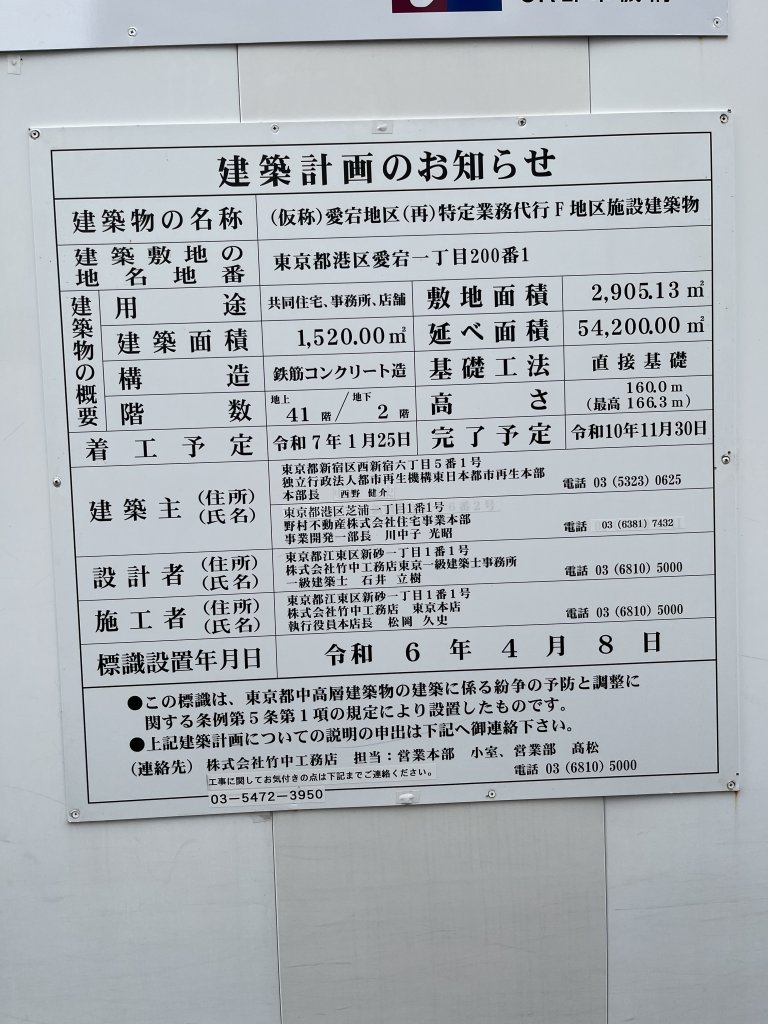 建築計画のお知らせ
建築物の名称 (仮称)愛宕地区(再)特定業務代行F地区施設建築物
建築敷地の地名地番 東京都港区愛宕一丁目200番1
建築物の概要
用途 共同住宅、事務所、店舗 敷地面積 2,905.13㎡
建築面積 1,520.00㎡ 延べ面積 54,200.00㎡
構造 鉄筋コンクリート造 基礎工法 直接基礎
階数 地上41階/地下2階 高さ 160.0m
(最高166.3m)
着工予定 令和7年1月25日 完了予定 令和10年11月30日
建築主(住所)(氏名)
東京都新宿区西新宿六丁目5番1号
独立行政法人都市再生機構東日本都市再生本部
本部長 西野 健介 電話 03(5323)0625
東京都港区芝浦一丁目1番1号
野村不動産株式会社住宅事業本部
事業開発一部長 川中子 光昭 電話 03(6381)7432
設計者(住所)(氏名)
東京都江東区新砂一丁目1番1号
株式会社竹中工務店東京一級建築士事務所
一級建築士 石井 立樹 電話 03(6810)5000
施工者(住所)(氏名)
東京都江東区新砂一丁目1番1号
株式会社竹中工務店 東京本店
執行役員本店長 松岡 久史 電話 03(6810)5000
標識設置年月日 令和6年4月8日
●この標識は、東京都中高層建築物の建築に係る紛争の予防と調整に
関する条例第5条第1項の規定により設置したものです。
●上記建築計画についての説明の申出は下記へ御連絡下さい。
(連絡先) 株式会社竹中工務店 担当:営業本部 小室、営業部 髙松
電話 03(6810)5000
工事に関してお気付きの点は下記までご連絡ください。
03-5472-3950